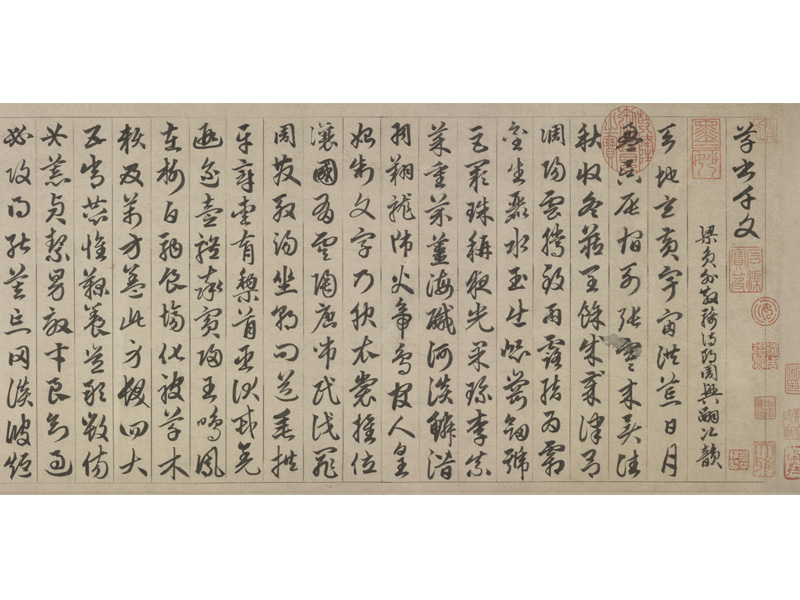 草書千文
梁員外散騎侍郎周興嗣次韻
天地玄黃宇宙洪荒日月
盈昃辰宿列張寒來暑往
秋收冬藏閏餘成歲律呂
調陽雲騰致雨露結為霜
金生麗水玉出崑崗劍號
巨闕珠稱夜光果珍李柰
菜重芥薑海鹹河淡鱗潛
羽翔龍師火帝鳥官人皇
始制文字乃服衣裳推位
讓國有虞陶唐弔民伐罪
周發殷湯坐朝問道垂拱
平章愛育黎首臣伏戎羌
遐邇壹體率賓歸王鳴鳳
在樹白駒食場化被草木
賴及萬方蓋此身髮四大
五常恭惟鞠養豈敢毀傷
女慕貞絜男效才良知過
必改得能莫忘罔談彼短